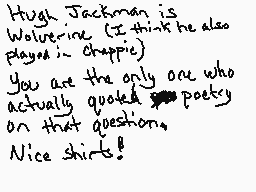 Hugh Jackman is
Wolverine (I think he also
played in chappie)
You are the only one who
actually quoted poetry
on that question.
Nice shirts!